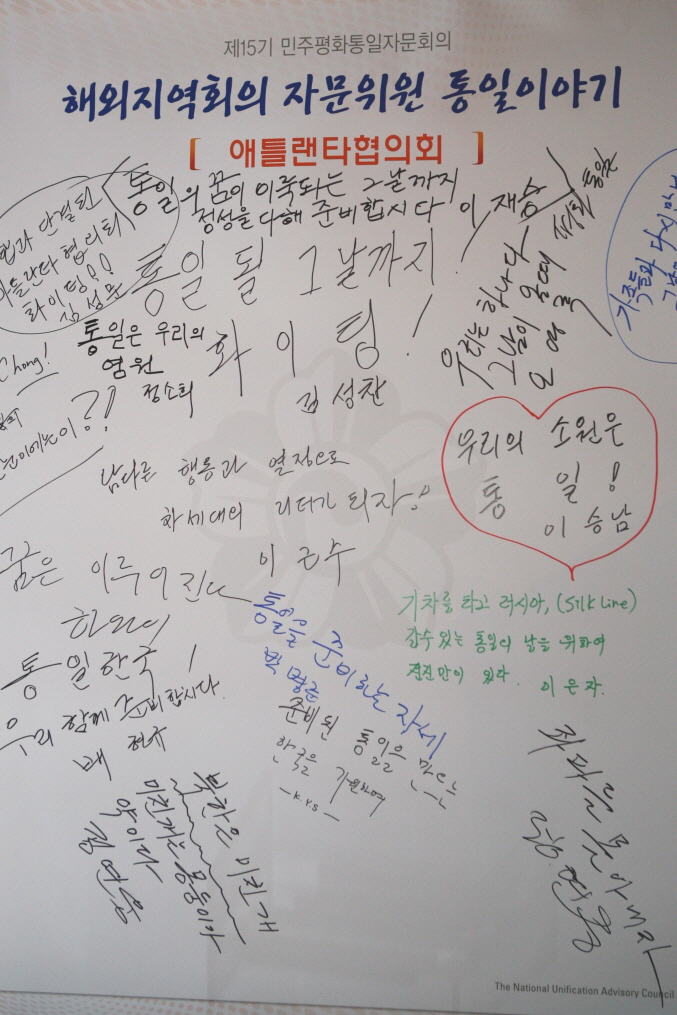 제15기 민주평화통일자문회의
해외지역회의 자문위원 통일이야기
[ 애틀랜타협의회 ]
통일의 꿈이 이룩되는 그날까지
정성을 다해 준비합시다 이재승
단결된
협의회
화이팅!!
김성문
통일 될 그날까지!
화이팅!
김성찬
우리는 하나다
그날이 올때
가족들과 다시 만나
통일은 우리의
염원
정소희
Chong!
우리의 소원은
통일!
이승남
남다른 행동과 열정으로
차세대의 리더가 되자!
이근수
꿈은 이루어진다
하나의
통일한국!
우리 함께 준비합시다.
배현규
통일을 준비하는 자세
박명준
준비된 통일을 만드는
한국을 기원하며
-K.Y.S-
기차를 타고 러시아, (Silk Line)
갈수 있는 통일의 날을 위하여
전진만이 있다. 이은자.
북한은 미친개
미친개는 몽둥이가
약이다
좌파를 몰아내자
The National Unification Advisory Council